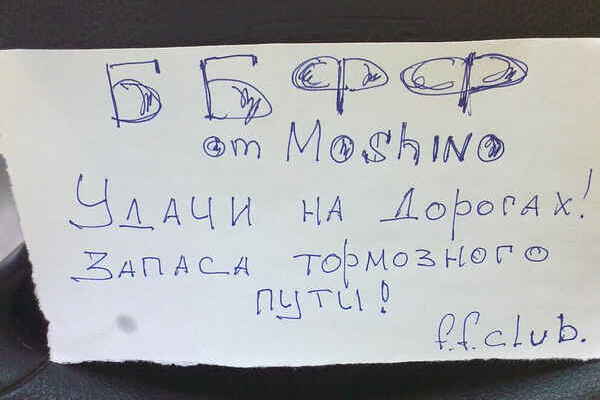 ББФФ
от MoshiNO
Удачи на Дорогах!
Запаса тормозного
пути!
f.f.club.